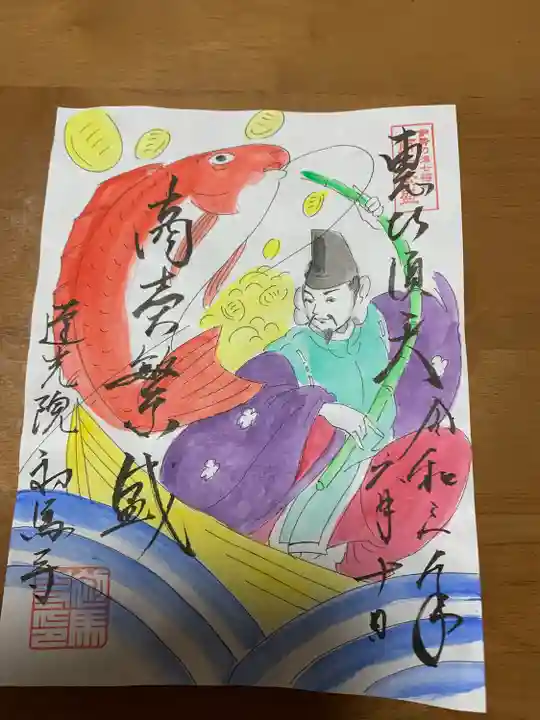 恵比須天
令和三年
六月十日
商売繁盛
道光院